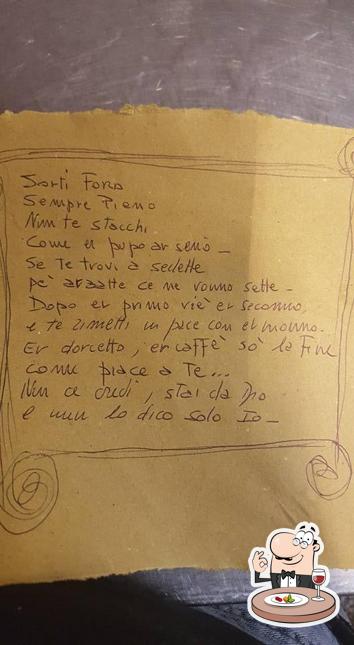 Sorti Fora
Sempre Pieno
Nun te stacchi
Come er pupo ar seno -
Se Te trovi a sedette
pe' arzatte ce ne vonno sette -
Dopo er primo viè er seconno,
e te rimetti in pace con el monno.
Er dorcetto, er caffè so' la Fine
come piace a Te...
Nun ce credi, stai da Dio
e nun lo dico solo Io -